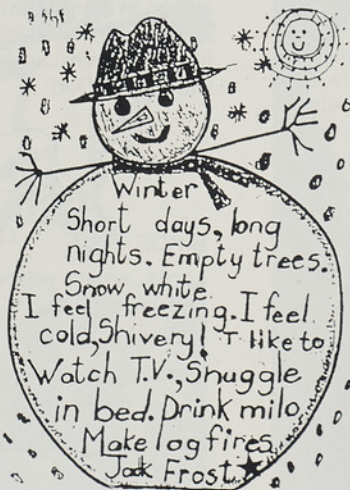 Winter
Short days, long
nights. Empty trees.
Snow white.
I feel freezing. I feel
cold, Shivery! I like to
Watch T.V., Snuggle
in bed. Drink milo
Make log fires.
Jack Frost